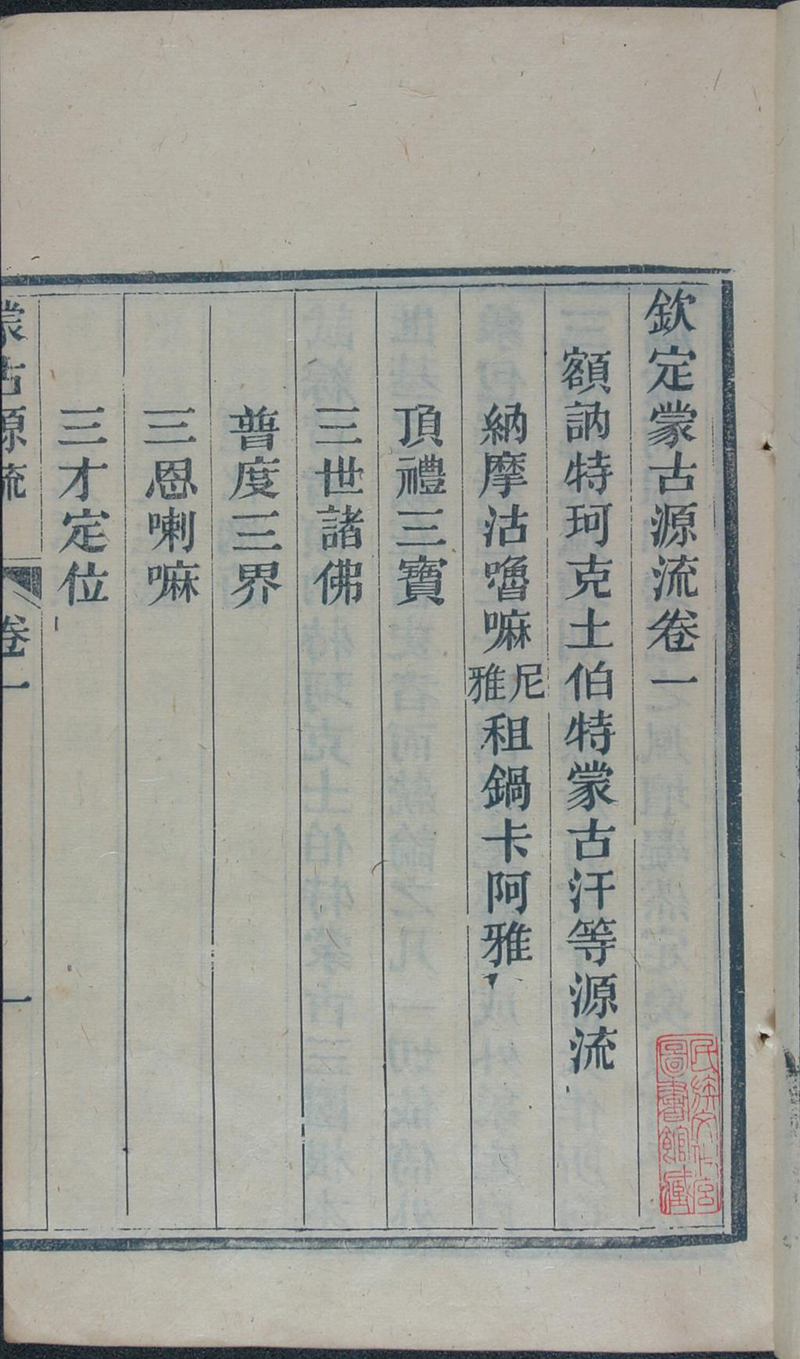 欽定蒙古源流卷一
額訥特珂克土伯特蒙古汗等源流
納摩沽嚕嘛尼雅租鍋卡阿雅
頂禮三寶
三世諸佛
普度三界
三恩喇嘛
三才定位
蒙古源流 卷一 一
民族文化宮圖書館藏